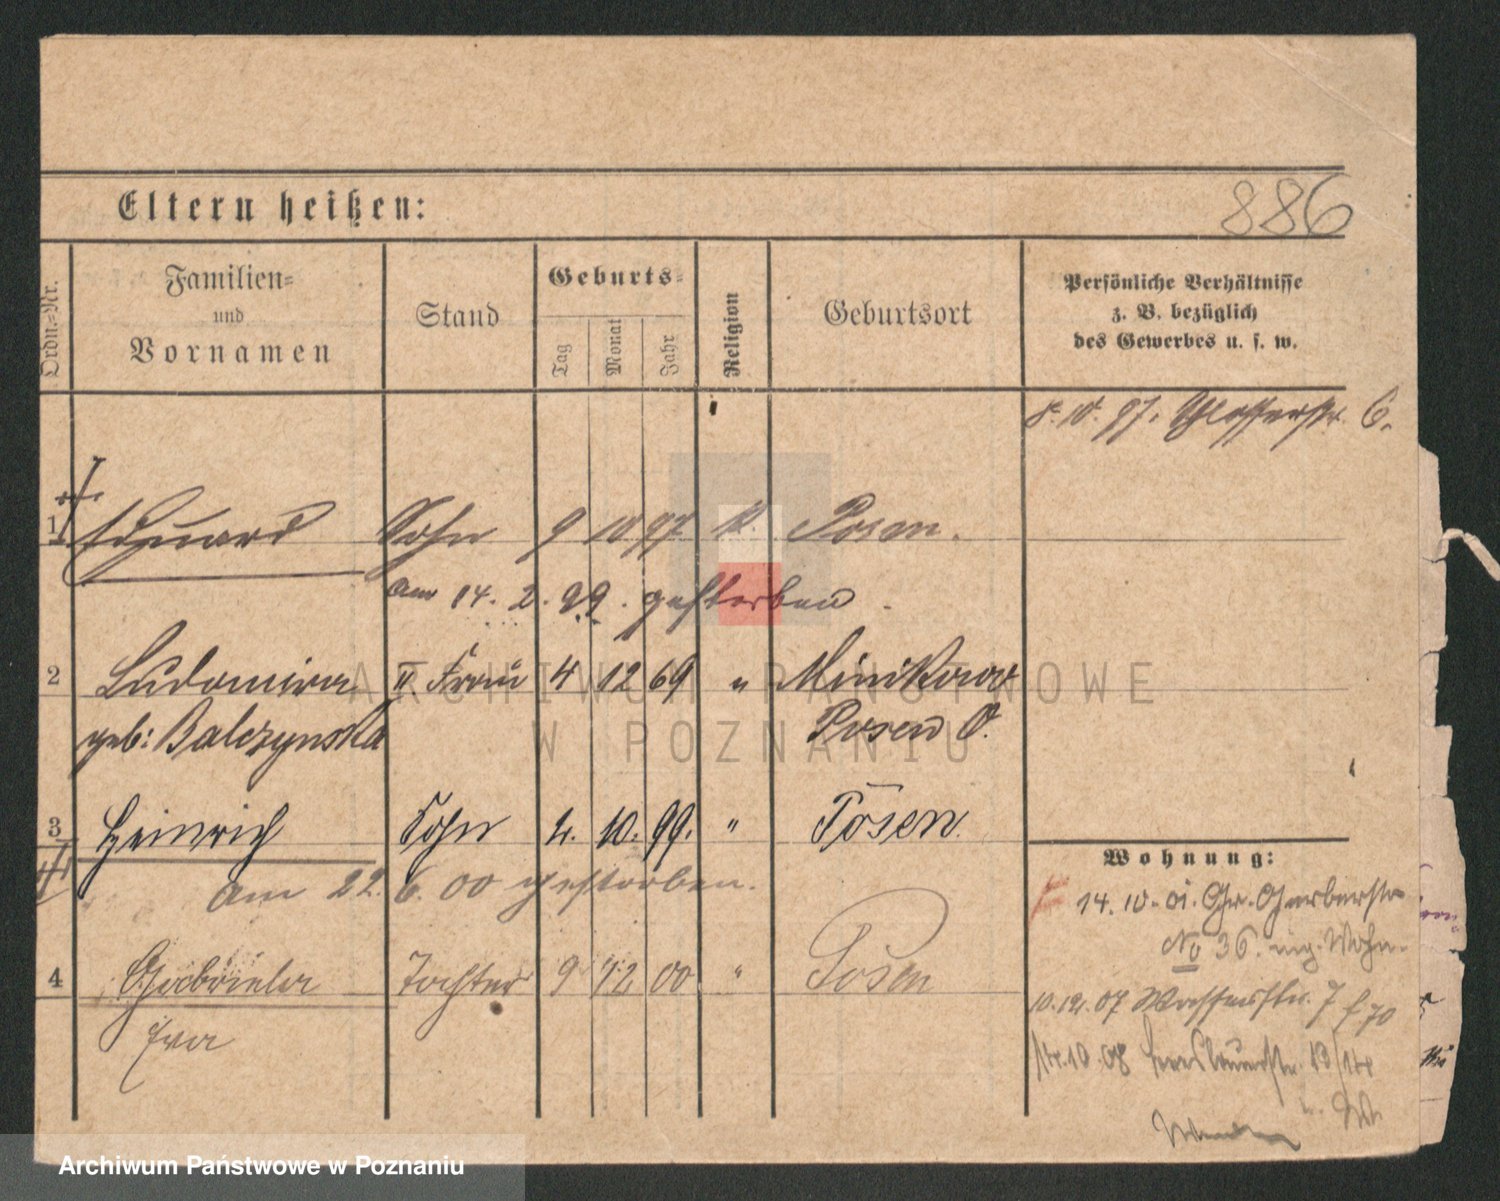 Eltern heißen:
886
Ordn.-Nr.
Familien-
und
Vornamen
Stand
Geburts-
Tag
Monat
Jahr
Religion
Geburtsort
Persönliche Verhältnisse
z. B. bezüglich
des Gewerbes u. s. w.
8. 10. 97. Schlosserstr. 6.
1 Eduard Sohn 9 10 97 k. Posen.
am 14. 2. 99. gestorben.
2 Ludomira II Frau 4 12 69 " Minikowo
geb: Balczynska Posen O.
3 Heinrich Sohn 4. 10. 99. " Posen
am 22. 6. 00 gestorben.
4 Gabriela Tochter 9 12 00 " Posen
Eva
Wohnung:
14. 10. 01. Gr. Gerberstr
No 36. Wohn.
10. 12. 07 Wasserstr. 7
14. 10 08 Breslauerstr. 13/14
ARCHIWUM PAŃSTWOWE
W POZNANIU
Archiwum Państwowe w Poznaniu